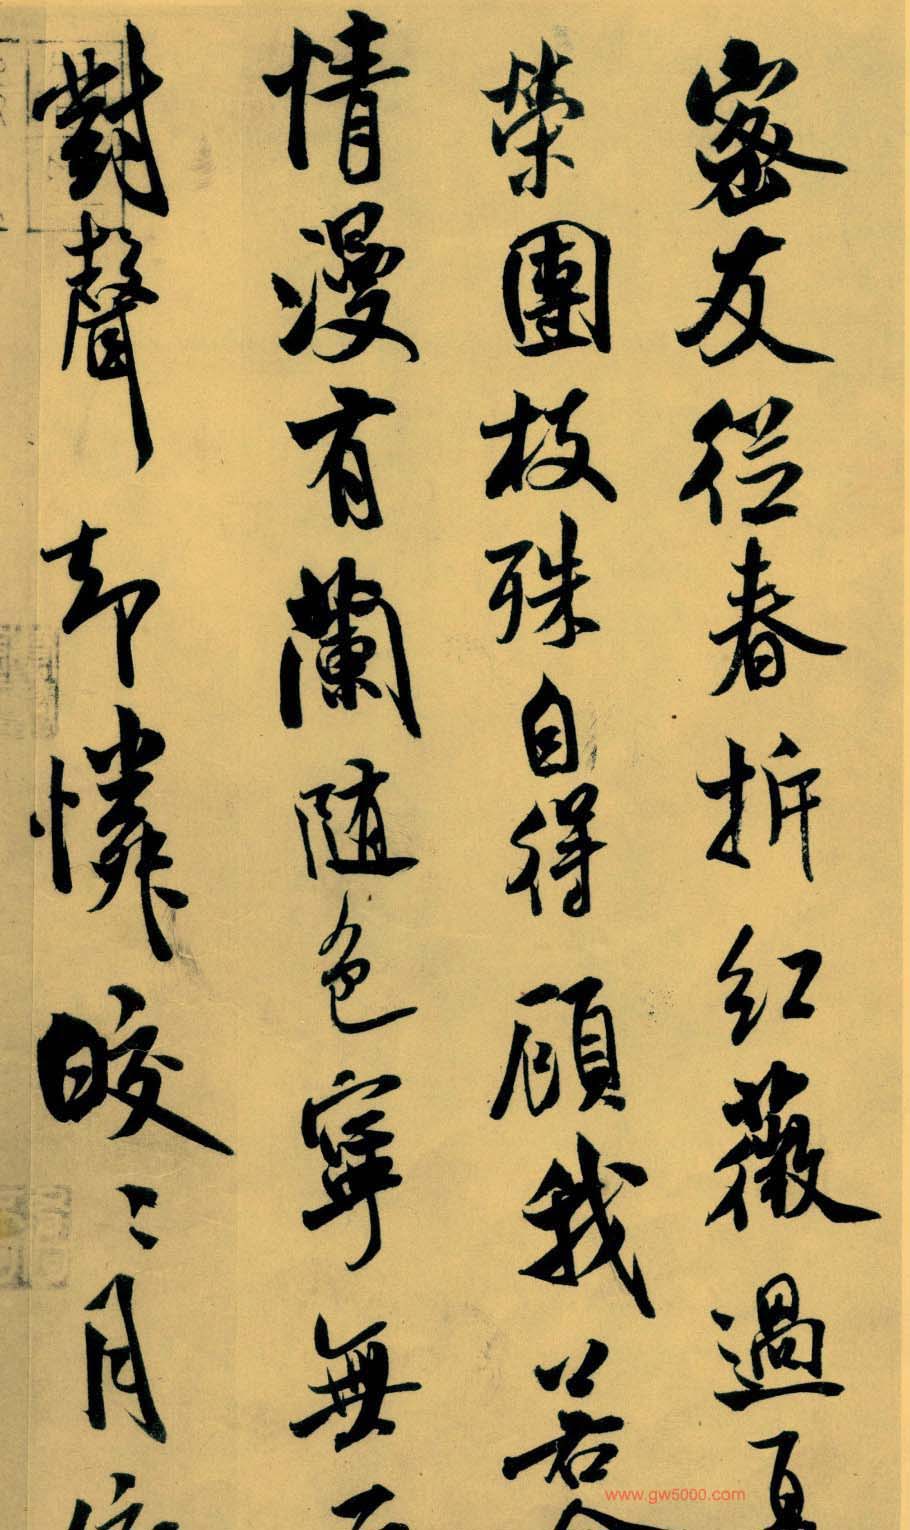 密友從春拆紅薇過夏
榮團枝殊自得顧我若
情漫有蘭随色寧無
對聲却憐皎〻月
www.gw5000.com